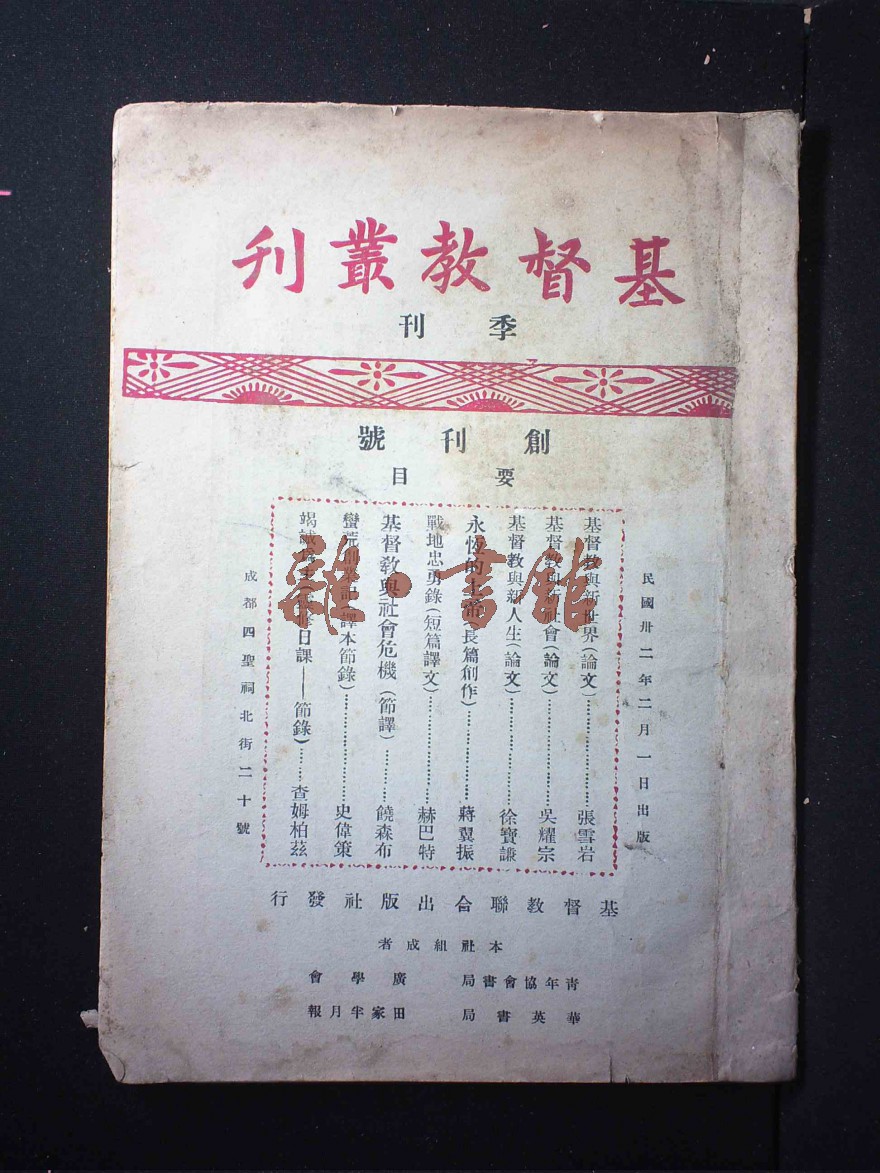 基督教叢刊
季刊
創刊號
要目
民國卅二年二月一日出版
基督教與新世界(論文)……張雪岩
基督教與新社會(論文)……吳耀宗
基督教與新人生(論文)……徐寶謙
永恆的上帝(長篇創作)……蔣翼振
戰地忠勇錄(短篇譯文)……赫巴特
基督教與社會危機(節譯)……饒森布
蠻荒創業記(譯本節錄)……史偉策
竭誠爲主(日課——節錄)……查姆柏茲
成都四聖祠北街二十號
基督教聯合出版社發行
本社組成者
青年協會書局 廣學會
華英書局 田家半月報
雜·書館